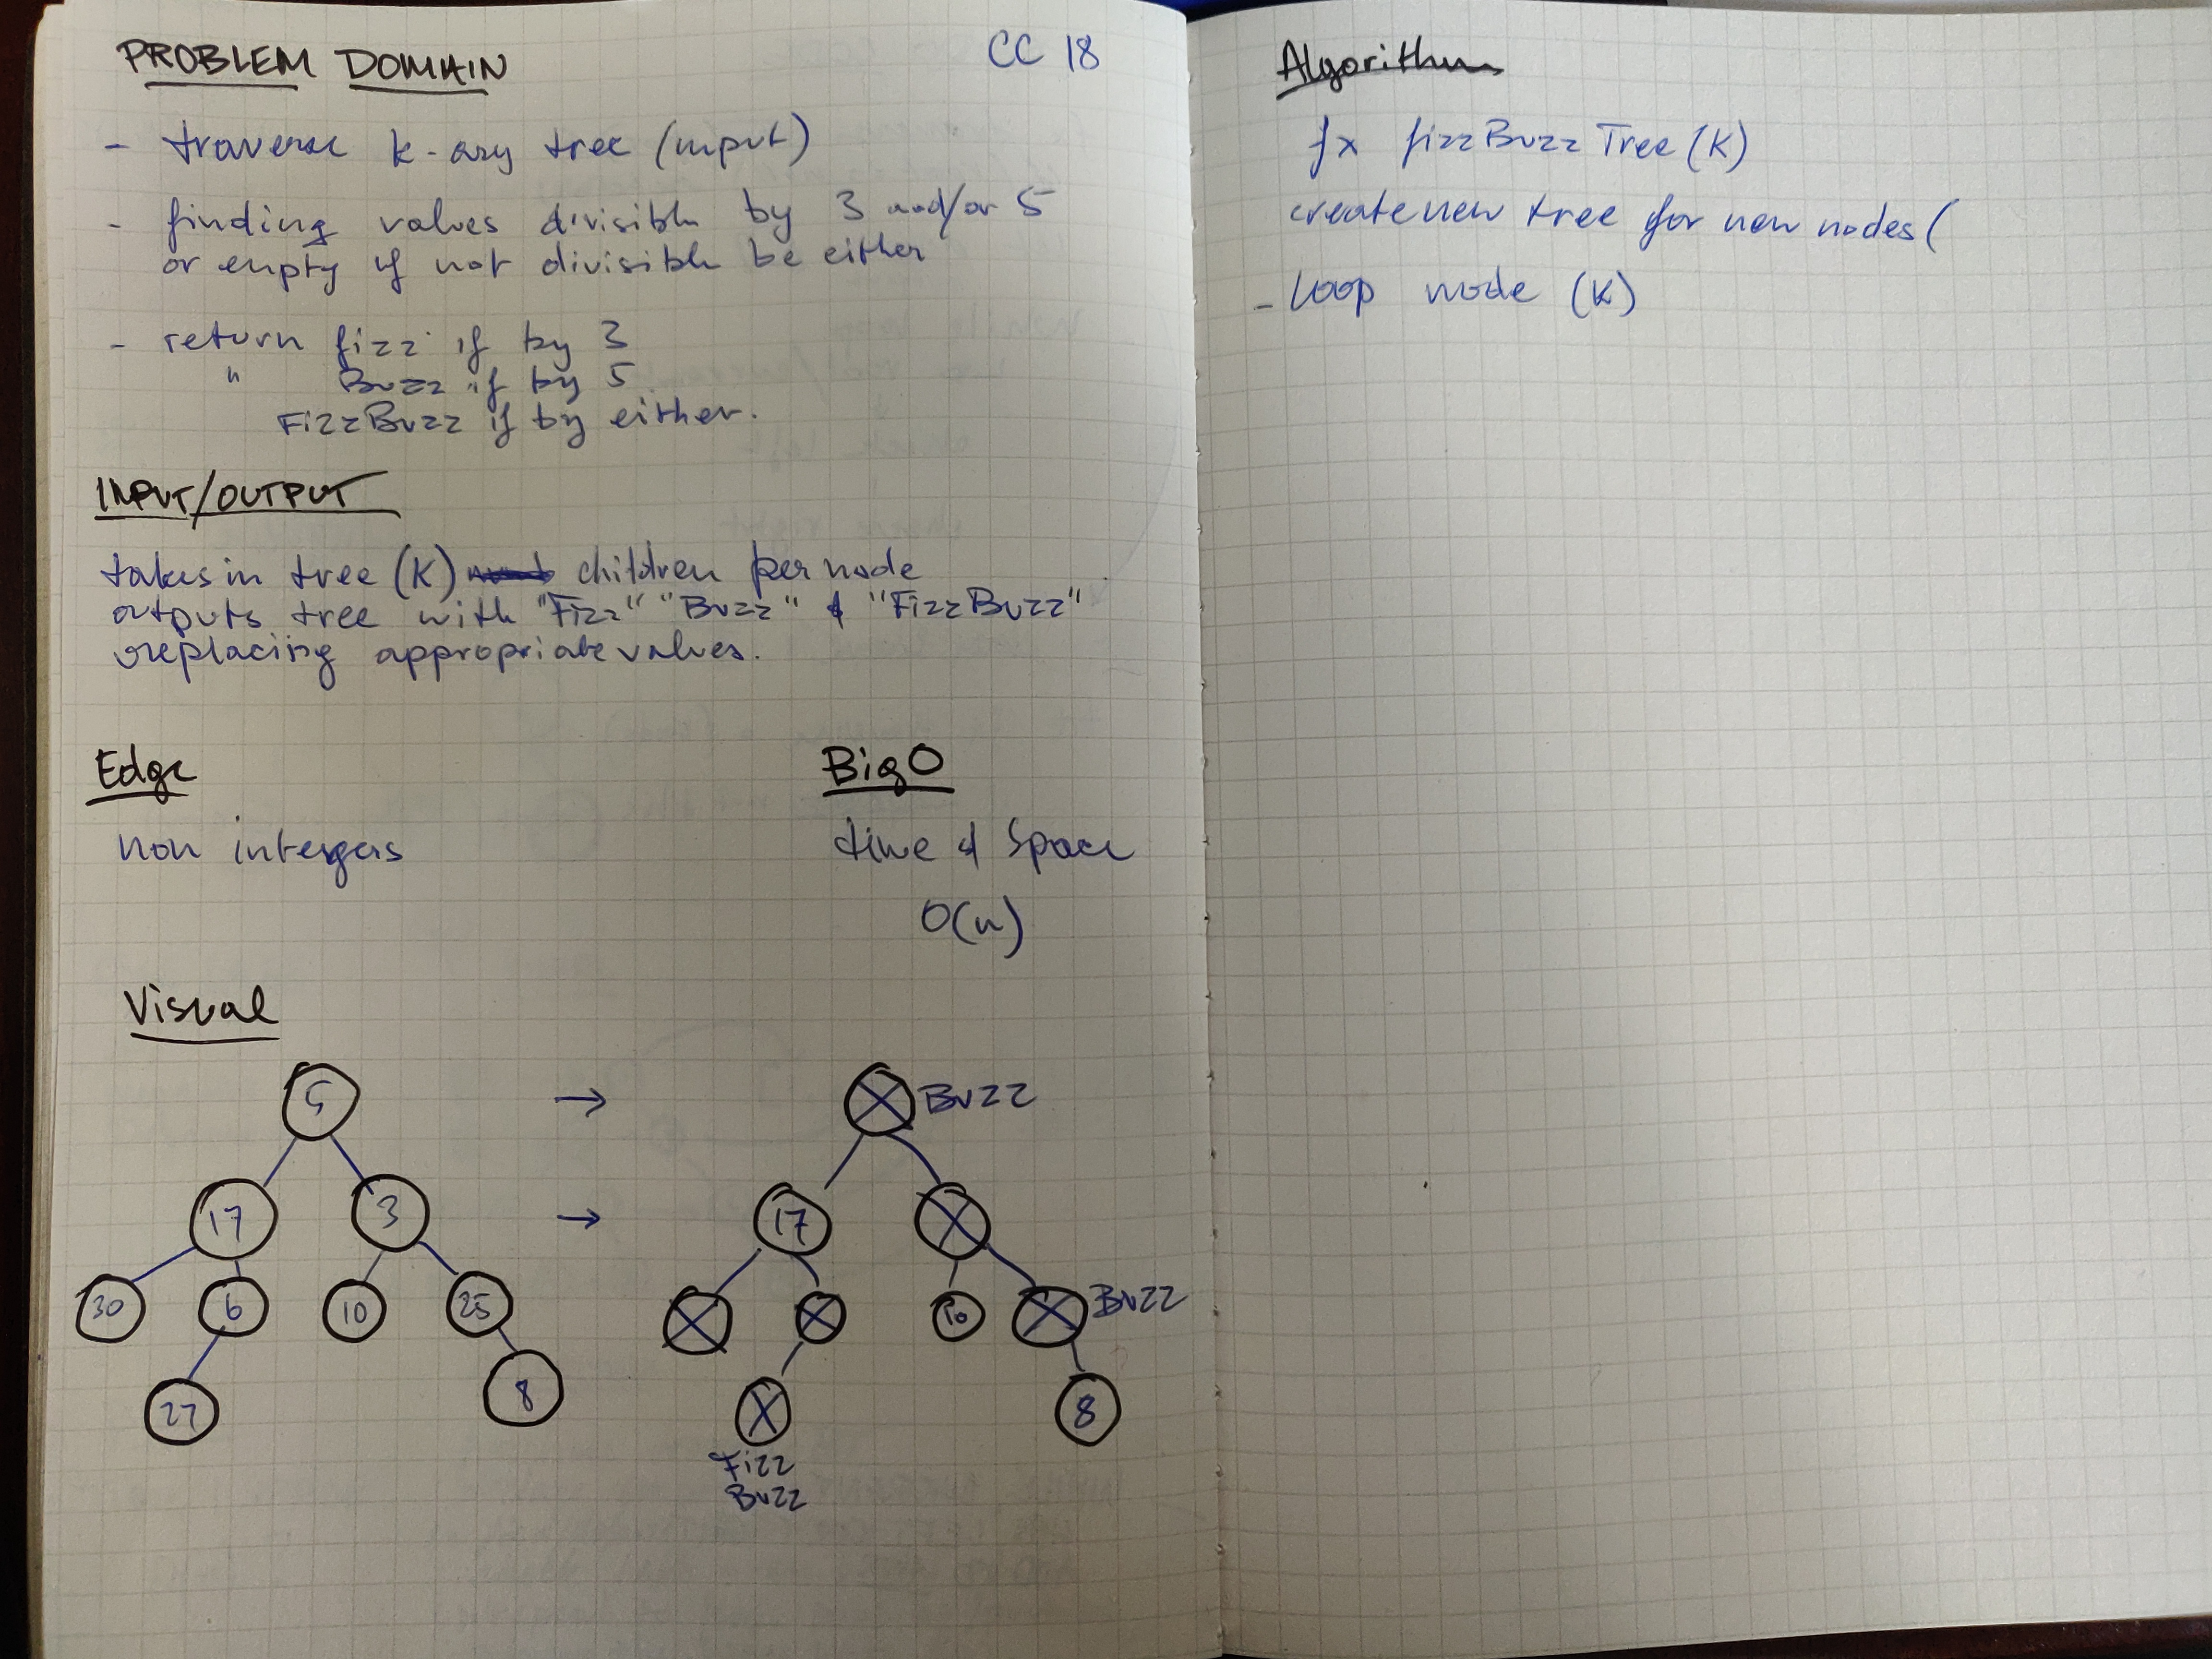 CC 18
PROBLEM DOMAIN
- traverse k-ary tree (input)
- finding values divisible by 3 and/or 5
or empty if not divisible be either
- return fizz if by 3
" Buzz if by 5
FizzBuzz if by either.
INPUT/OUTPUT
takes in tree (K) children per node
outputs tree with "Fizz" "Buzz" & "FizzBuzz"
replacing appropriate values.
Edge
non integers
BigO
time & space
O(n)
Visual
5
17
3
30
6
10
25
27
8
→
→
Buzz
17
10
Buzz
8
Fizz
Buzz
Algorithm
fx fizzBuzzTree(K)
create new tree for new nodes(
- loop node (K)